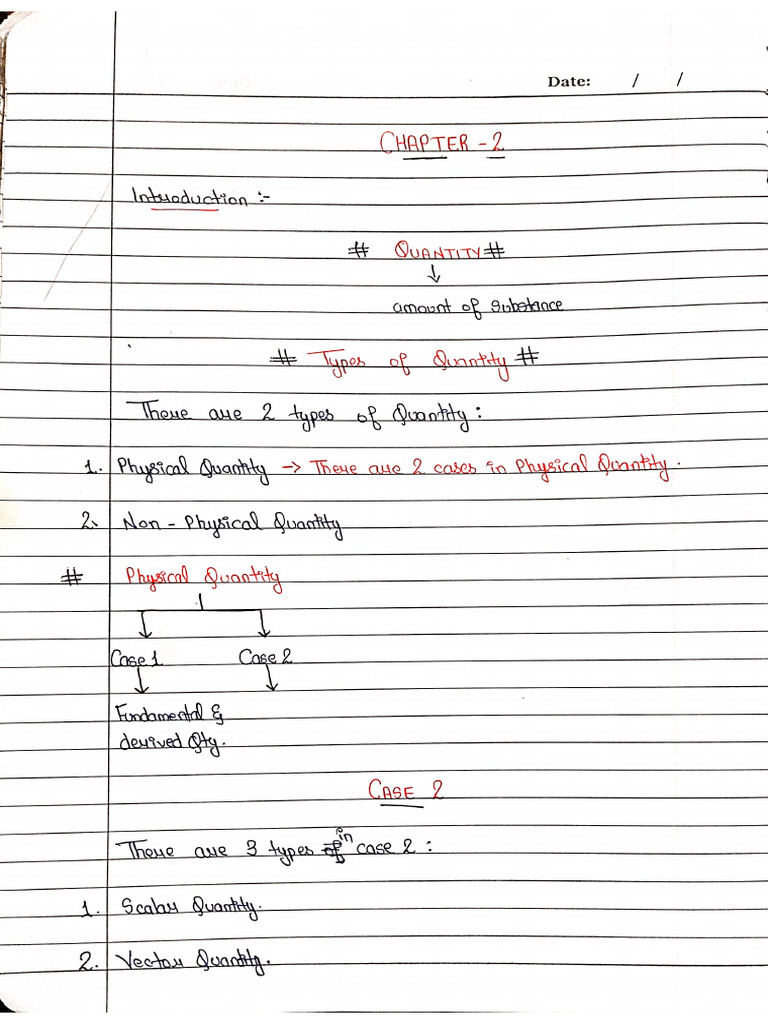 Date: / /
CHAPTER - 2
Introduction :-
# QUANTITY #
↓
amount of substance
# Types of Quantity #
There are 2 types of Quantity :
1. Physical Quantity -> There are 2 cases in Physical Quantity.
2. Non - Physical Quantity
# Physical Quantity
Case 1 Case 2
Fundamental &
derived Qty.
CASE 2
There are 3 types of in case 2 :
1. Scalar Quantity.
2. Vector Quantity.